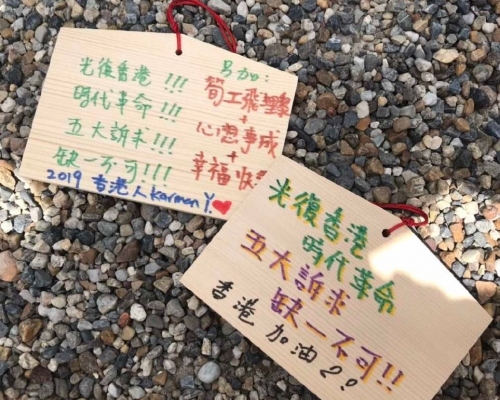 光復香港!!!
時代革命!!!
五大訴求!!!
缺一不可!!!
2019 香港人 Karmen Y.
另加:
+
心想事成
+
幸福
光復香港
時代革命
五大訴求
缺一不可!!
香港加油